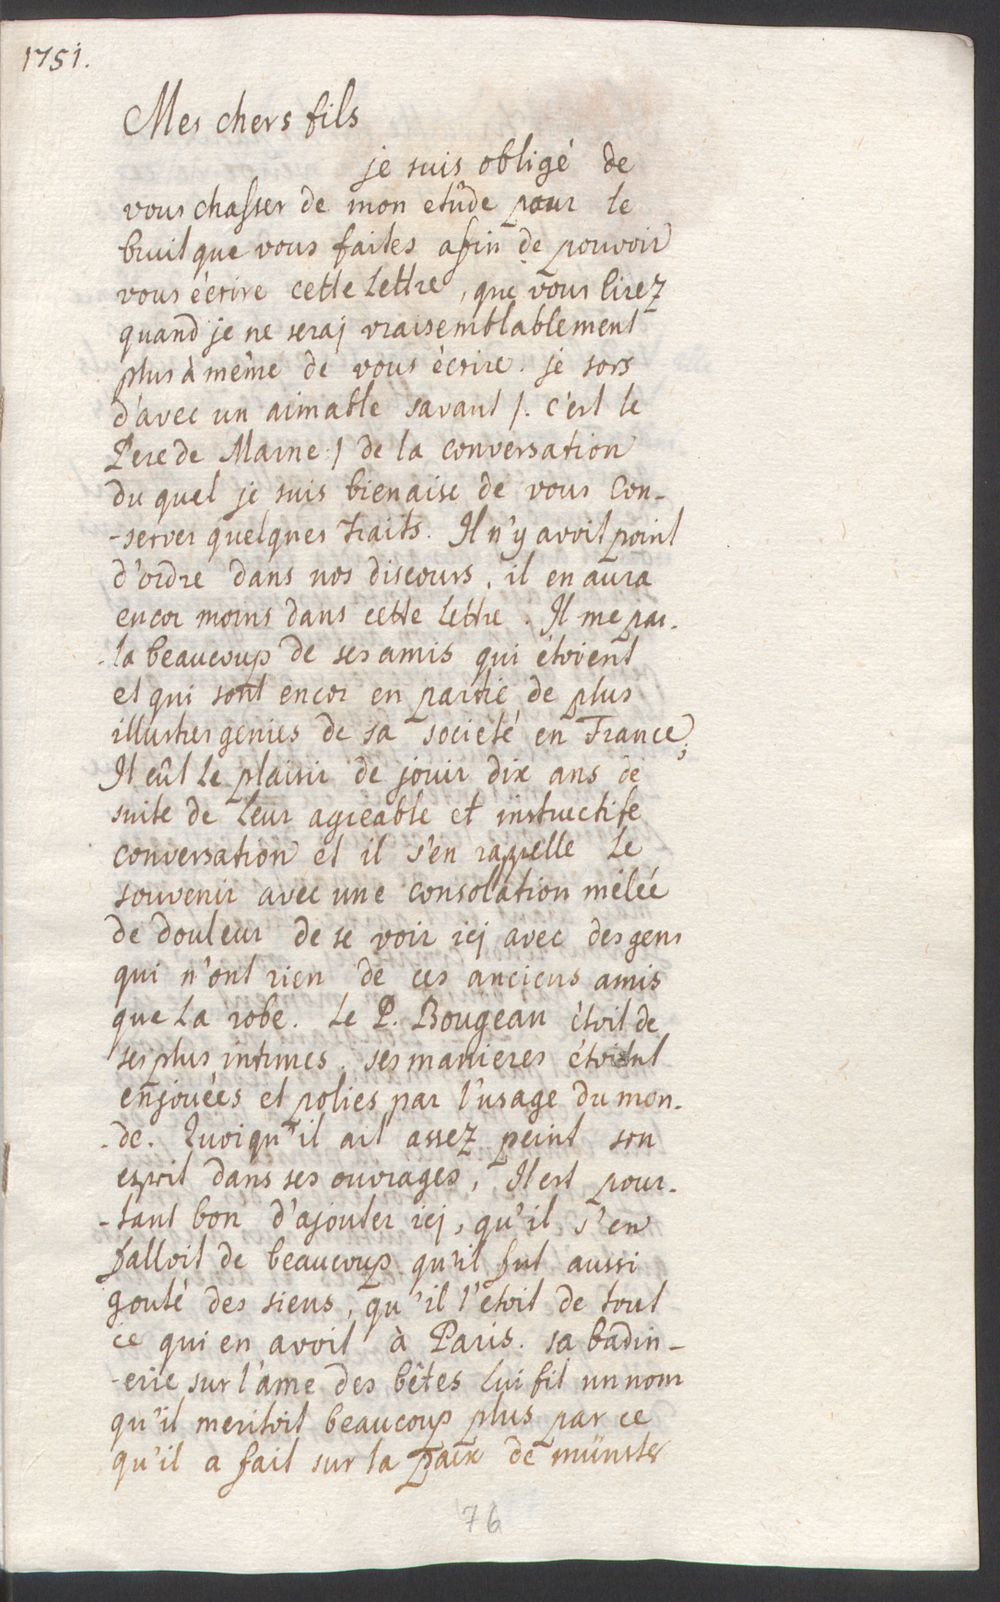 1751.
Mes chers fils
je suis obligé de
vous chasser de mon etûde pour le
bruit que vous faites afin de pouvoir
vous écrire cette Lettre, que vous lirez
quand je ne seraj vraisemblablement
plus à même de vous écrire. je sors
d'avec un aimable savant /. c'est le
Pere de Marne :/ de la conversation
du quel je suis bienaise de vous con-
-server quelques traits. Il n'y avoit point
d'ordre dans nos discours, il en aura
encor moins dans cette Lettre. Il me par-
-la beaucoup de ses amis qui étoient
et qui sont encor en partie de plus
illustres genies de sa societé en France;
Il eût le plaisir de jouir dix ans de
suite de leur agreable et instructife
conversation et il s'en rappelle le
souvenir avec une consolation mêlée
de douleur de se voir icj avec des gens
qui n'ont rien de ces anciens amis
que la robe. Le P. Bougeau étoit de
ses plus intimes. ses manieres étoient
enjouées et polies par l'usage du mon-
-de. Quoiqu'il ait assez peint son
esprit dans ses ouvrages, Il est pour-
-tant bon d'ajouter icj, qu'il s'en
falloit de beaucoup qu'il fut aussi
gouté des siens, qu'il l'etoit de tout
ce qui en avoit à Paris. sa badin-
-erie sur l'âme des bêtes lui fit un nom
qu'il meritoit beaucoup plus par ce
qu'il a fait sur la paix de münster
76